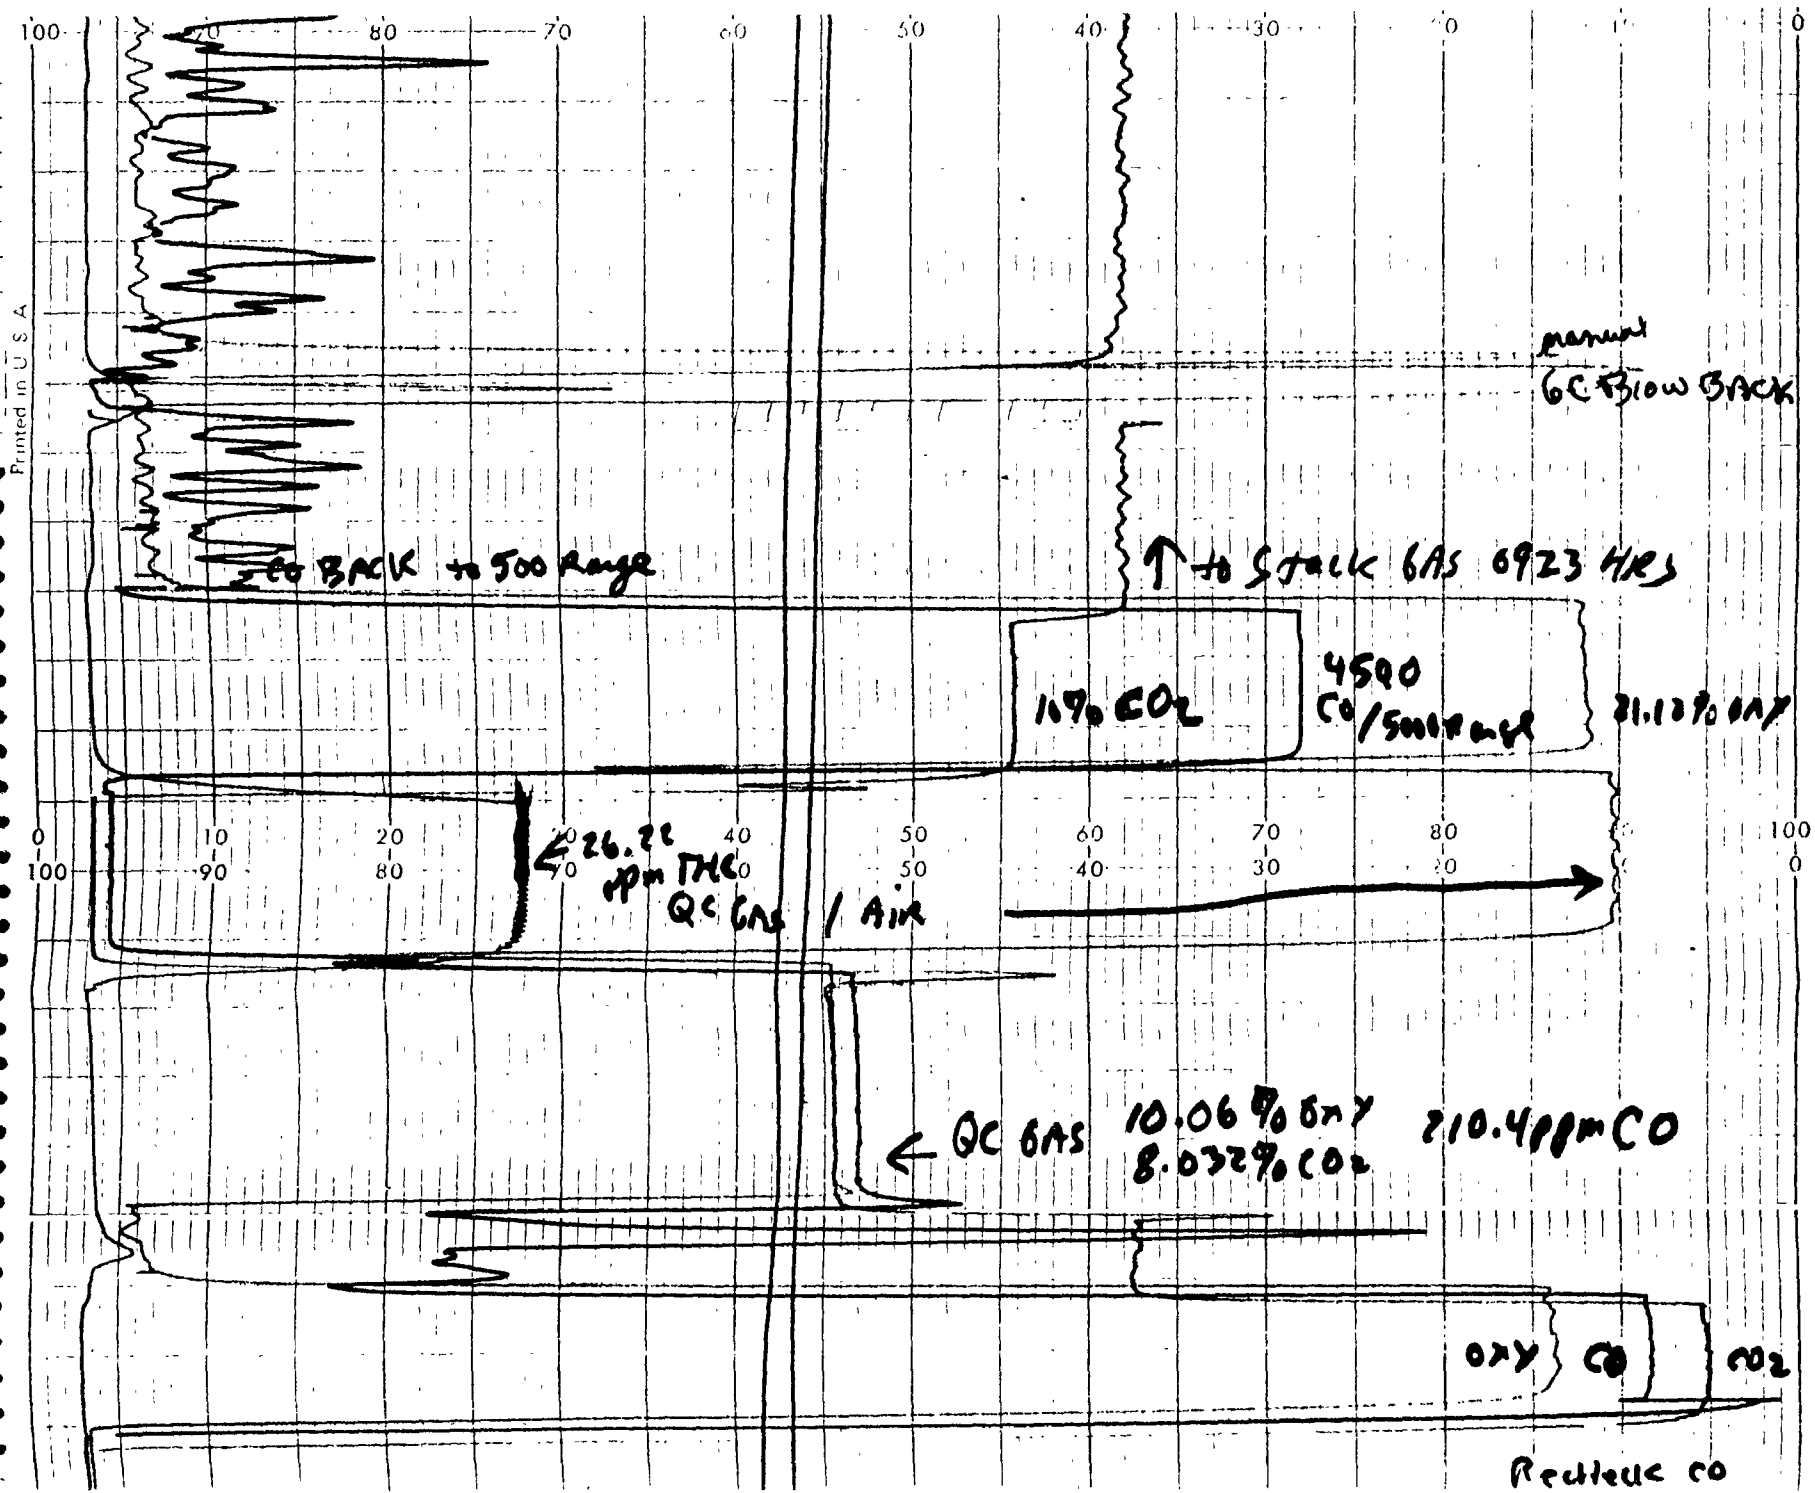 100 80 70 60 50 40 30 0
Printed in U S A
manual
GC Blow BACK
CO BACK to 500 Range
↑ to Stack GAS 0923 HRS
10% CO2
4590
CO
/5000 Range
21.12% OXY
0 10 20 40 50 60 70 80 100
100 90 80 70 50 40 30 20 0
← 26.22
ppm THC
QC GAS / AIR
← QC GAS 10.06% OXY 210.4ppm CO
8.032% CO2
OXY CO CO2
Recheck CO